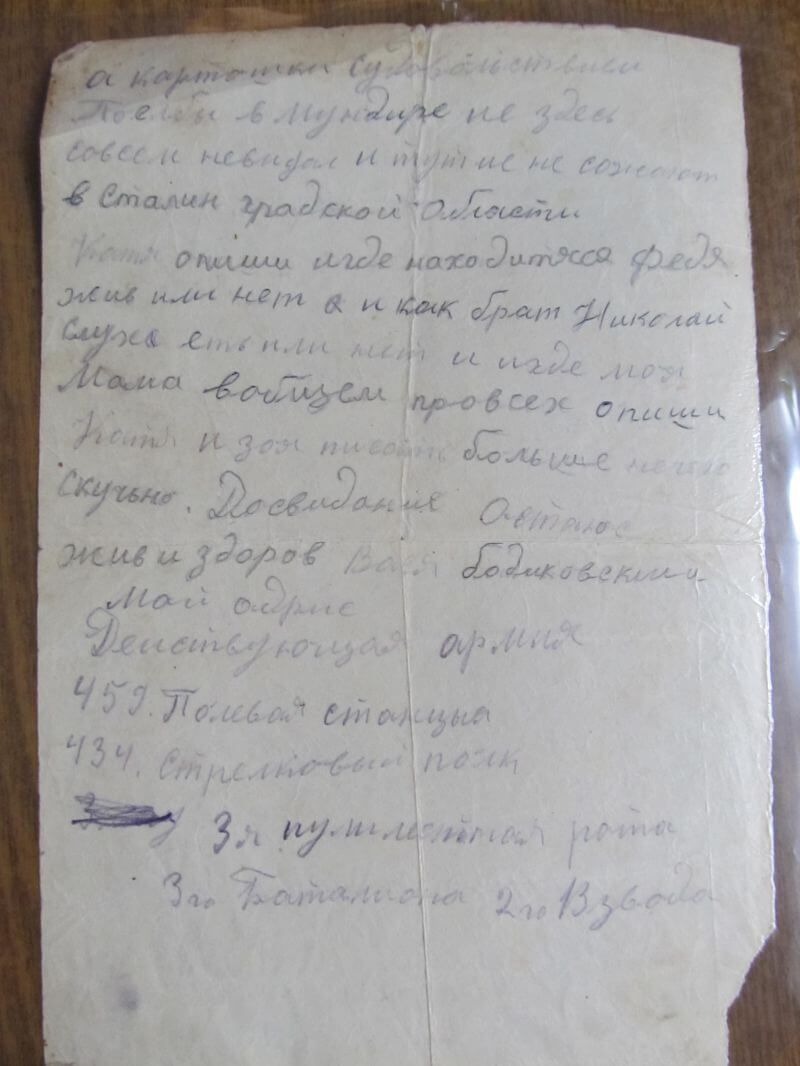 а картошки судовольствием
Поелбы в мундире не здесь
совсем невидал и тут ие не сожают
в Сталин градской Области
Катя опиши игде находитяся Федя
жив или нет а и как брат Николай
слуха еть или нет и игде моя
Мама вобщем провсех опиши
Катя и зоя писать больше нечего
скучьно. Досвидания Овтаюс
жив и здоров Вася Бодиковский
мой адрис
Действующая армия
459. Полевая станцыа
434. Стрелковый полк
3я пулиметная рота
3го Баталиона 2го Взвода